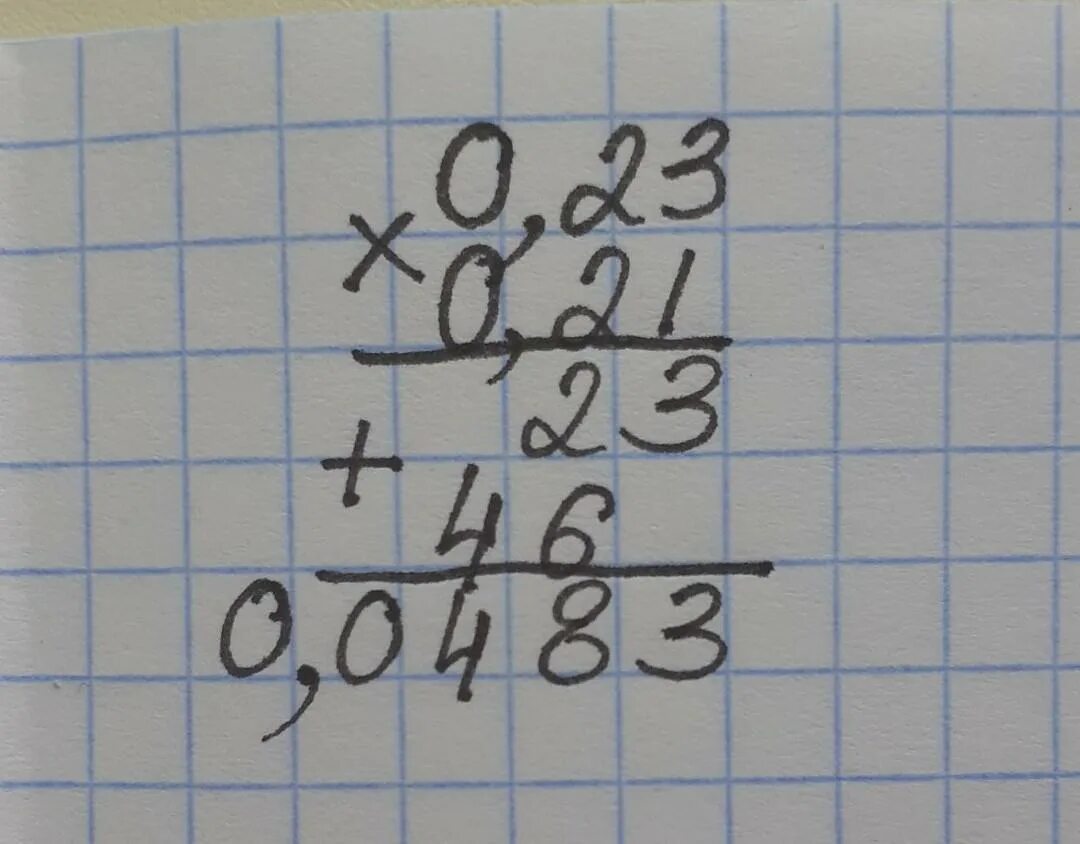 0,23
×
0,21
23
+
46
0,0483